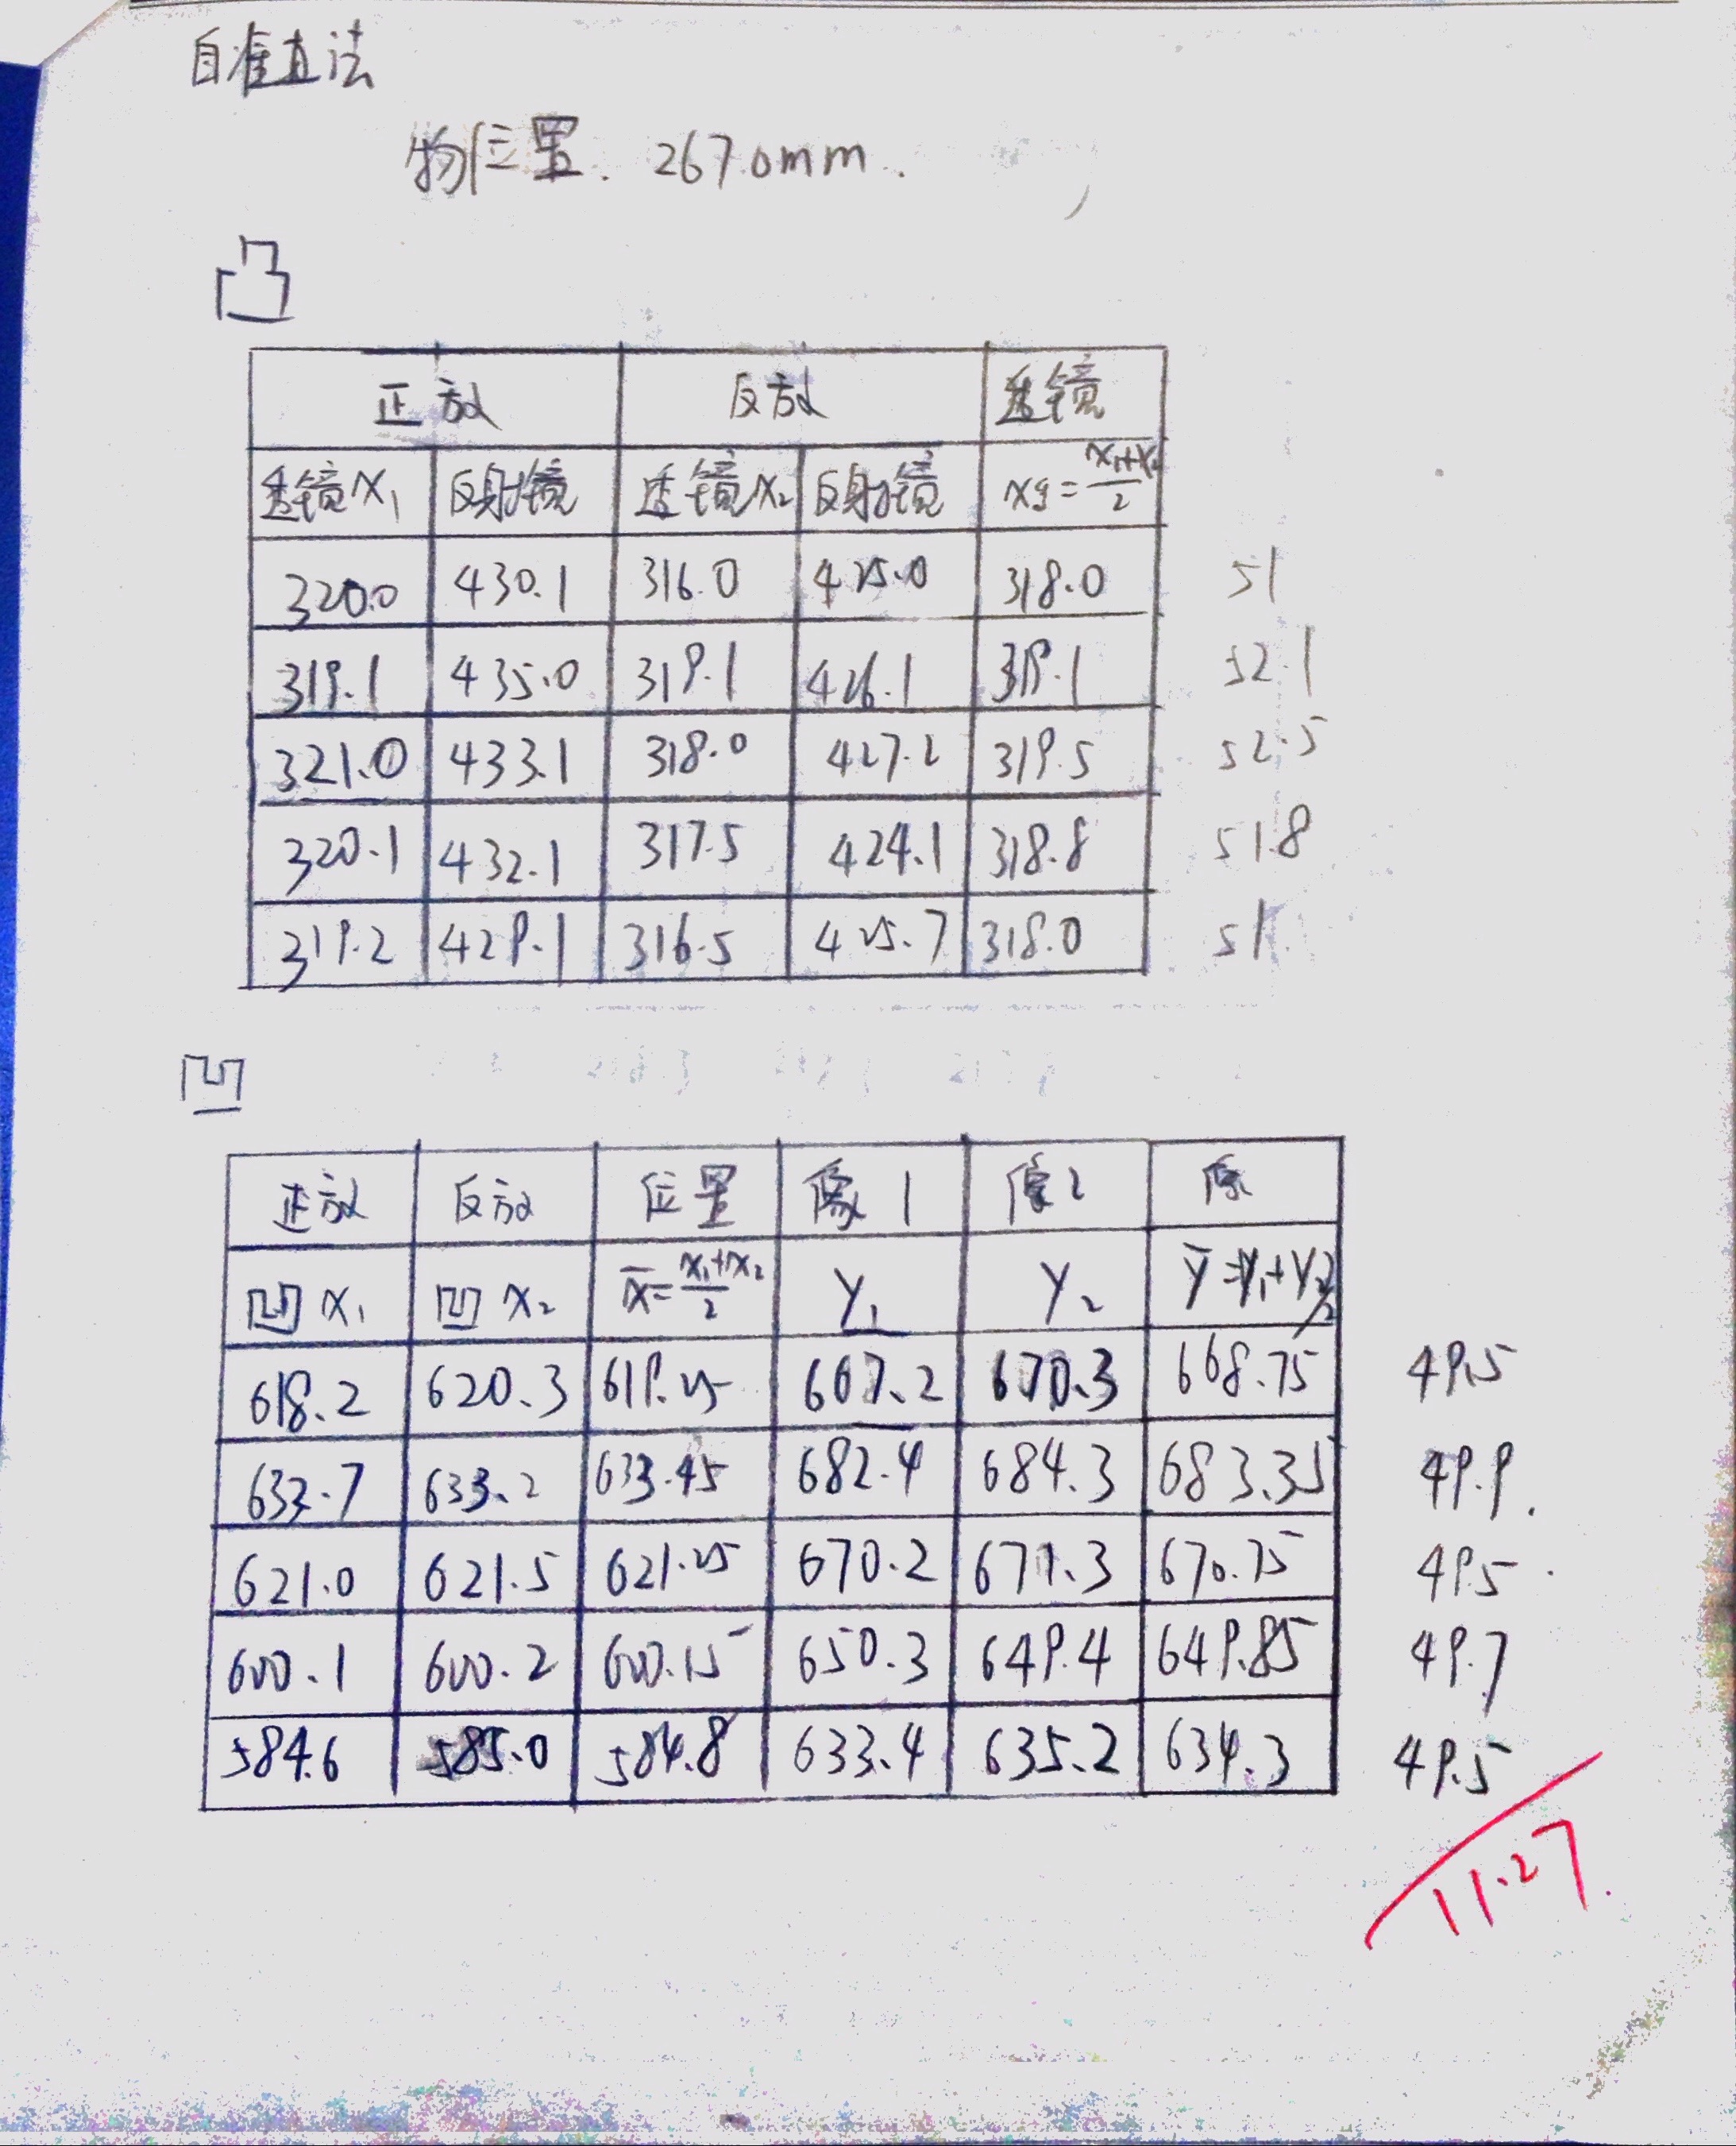 自准直法
物位置. 267.0mm.
凸
正放 反放 透镜
透镜X₁ 反射镜 透镜X₂ 反射镜 x̄=(x₁+x₂)/2
320.0 430.1 316.0 425.0 318.0 51
319.1 435.0 319.1 426.1 319.1 52.1
321.0 433.1 318.0 427.2 319.5 52.5
320.1 432.1 317.5 424.1 318.8 51.8
319.2 429.1 316.5 425.7 318.0 51
凹
正放 反放 位置 像1 像2 像
凹X₁ 凹X₂ x̄=(x₁+x₂)/2 Y₁ Y₂ ȳ=Y₁+Y₂/2
618.2 620.3 619.25 667.2 670.3 668.75 49.5
633.7 633.2 633.45 682.4 684.3 683.35 49.9.
621.0 621.5 621.25 670.2 671.3 670.75 49.5
600.1 600.2 600.15 650.3 649.4 649.85 49.7
584.6 585.0 584.8 633.4 635.2 634.3 49.5
11.27.